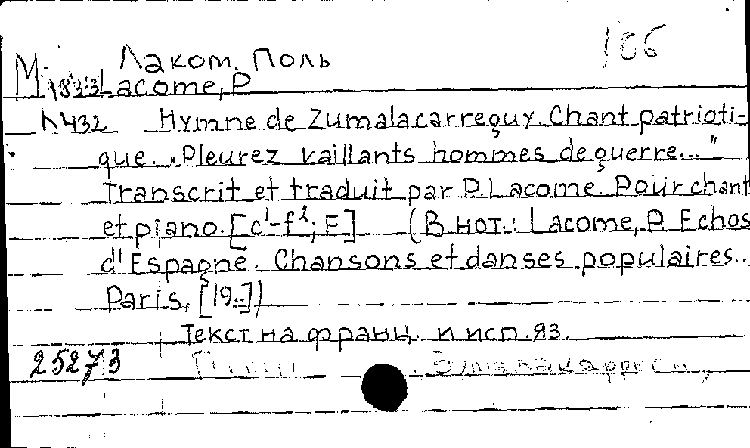 Лаком, Поль
М
1833
Lacome, P
Л432 Hymne de Zumalacarreguy. Chant patrioti-
que. „Pleurez vaillants hommes de guerre..."
Transcrit et traduit par P. Lacome. Pour chant
et piano. [c¹-f²; F] (В нот.: Lacome, P. Echos
d'Espagne. Chansons et danses populaires..
Paris, [19..])
Текст на франц. и исп. яз.
25273